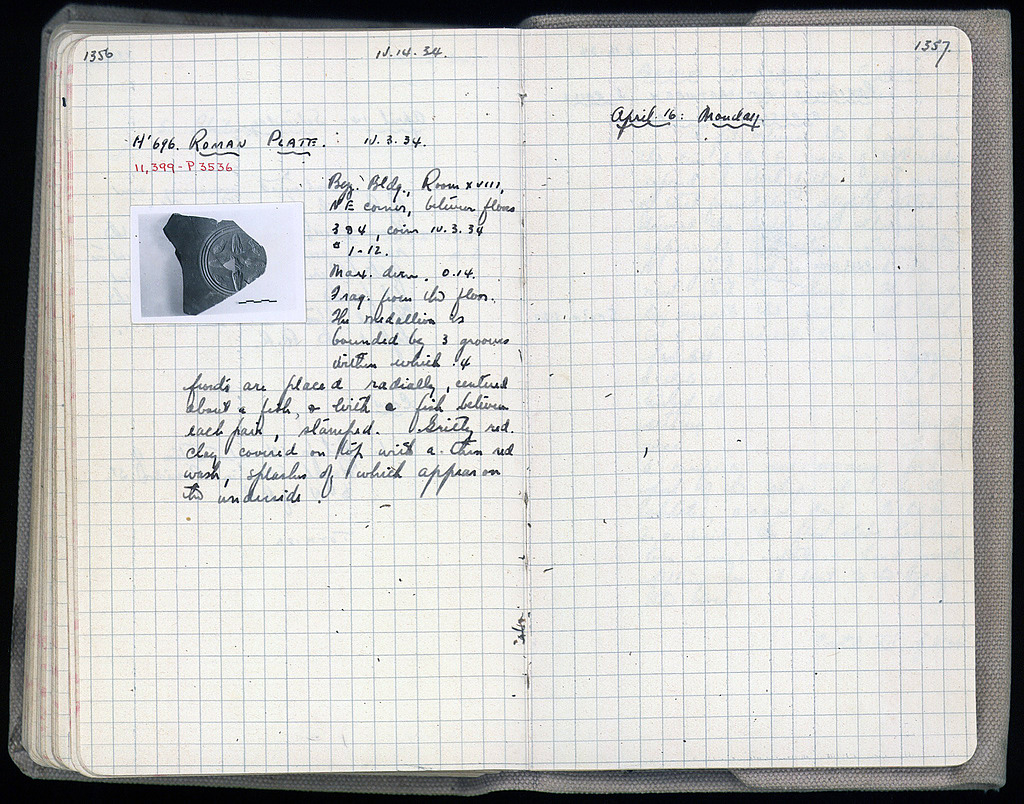 1356
IV.14.34.
H'696. ROMAN PLATE: IV.3.34.
11,399 - P 3536
Byz. Bldg., Room XVIII,
NE corner, between floors
3 & 4, coins IV.3.34
# 1-12.
Max. dim. 0.14.
Frag. from the floor.
The medallion is
bounded by 3 grooves
within which 4
fronds are placed radially, centered
about a fish, & with a fish between
each pair, stamped. Gritty red
clay covered on top with a thin red
wash, splashes of which appear on
the underside.
1357.
April 16: Monday